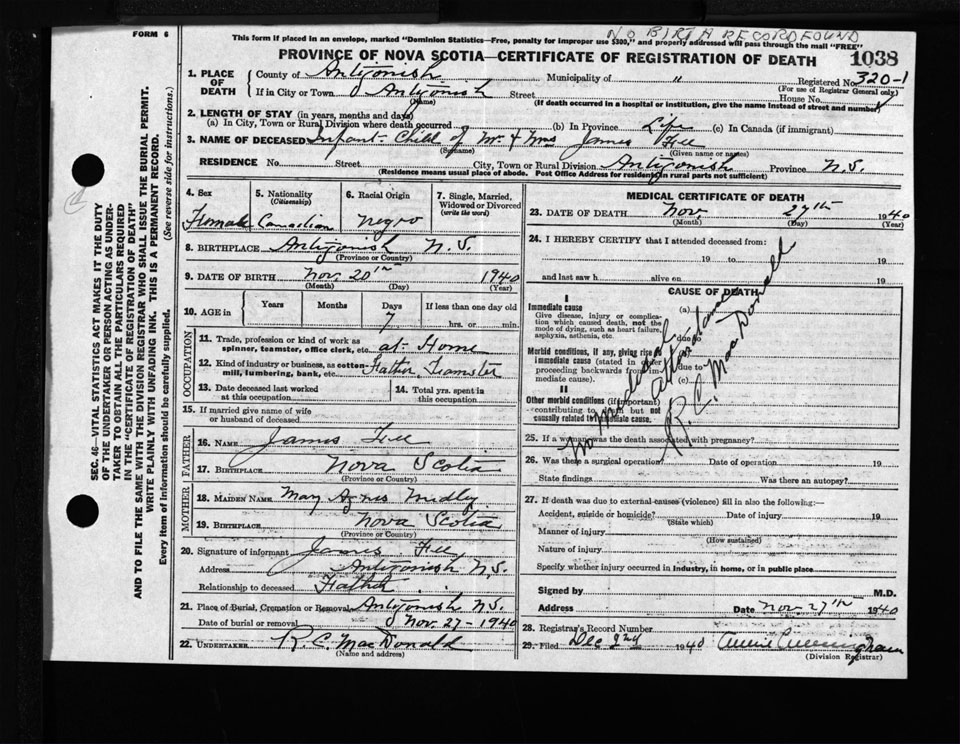 NO BIRTH RECORD FOUND
FORM 6
This form if placed in an envelope, marked "Dominion Statistics—Free, penalty for improper use $300," and properly addressed will pass through the mail "FREE"
PROVINCE OF NOVA SCOTIA—CERTIFICATE OF REGISTRATION OF DEATH 1038
1. PLACE OF DEATH
County of Antigonish Municipality of " Registered No. 320-1
(For use of Registrar General only)
If in City or Town Antigonish Street House No.
(Name) (If death occurred in a hospital or institution, give the name instead of street and number)
2. LENGTH OF STAY (in years, months and days)
(a) In City, Town or Rural Division where death occurred (b) In Province Life (c) In Canada (if immigrant)
3. NAME OF DECEASED Infant Child of Mr. & Mrs James Fee
(Surname) (Given name or names)
RESIDENCE No. Street City, Town or Rural Division Antigonish Province N.S.
(Residence means usual place of abode. Post Office Address for residents in rural parts not sufficient)
4. Sex Female
5. Nationality (Citizenship) Canadian
6. Racial Origin Negro
7. Single, Married, Widowed or Divorced (write the word)
8. BIRTHPLACE Antigonish N.S.
(Province or Country)
9. DATE OF BIRTH Nov. 20th 1940
(Month) (Day) (Year)
10. AGE in Years Months Days If less than one day old
7 hrs. or min.
OCCUPATION
11. Trade, profession or kind of work as spinner, teamster, office clerk, etc. at Home
12. Kind of industry or business, as cotton mill, lumbering, bank, etc. Father Teamster
13. Date deceased last worked at this occupation
14. Total yrs. spent in this occupation
15. If married give name of wife or husband of deceased
FATHER
16. NAME James Fee
17. BIRTHPLACE Nova Scotia
(Province or Country)
MOTHER
18. MAIDEN NAME Mary Agnes
19. BIRTHPLACE Nova Scotia
(Province or Country)
20. Signature of informant James Fee
Address Antigonish N.S.
Relationship to deceased Father
21. Place of Burial, Cremation or Removal Antigonish N.S.
Date of burial or removal Nov. 27 - 1940
22. UNDERTAKER R. C. MacDonald
(Name and address)
MEDICAL CERTIFICATE OF DEATH
23. DATE OF DEATH Nov 27th 1940
(Month) (Day) (Year)
24. I HEREBY CERTIFY that I attended deceased from:
19 to 19
and last saw h alive on 19
CAUSE OF DEATH
I
Immediate cause (a)
Give disease, injury or complication which caused death, not the mode of dying, such as heart failure, asphyxia, asthenia, etc.
due to
Morbid conditions, if any, giving rise to immediate cause (stated in order proceeding backwards from immediate cause).
due to
(c)
II
Other morbid conditions (if important) contributing to death but not causally related to immediate cause.
no medical attendance
R. C. MacDonald
25. If a woman was the death associated with pregnancy?
26. Was there a surgical operation? Date of operation 19
State findings Was there an autopsy?
27. If death was due to external causes (violence) fill in also the following:—
Accident, suicide or homicide? Date of injury 19
(State which)
Manner of injury
(How sustained)
Nature of injury
Specify whether injury occurred in industry, in home, or in public place
Signed by M.D.
Address Date Nov 27th 1940
28. Registrar's Record Number
29. Filed Dec 2nd 1940 Annie Cunningham
(Division Registrar)
SEC. 46—VITAL STATISTICS ACT MAKES IT THE DUTY
OF THE UNDERTAKER OR PERSON ACTING AS UNDER-
TAKER TO OBTAIN ALL THE PARTICULARS REQUIRED
IN THE "CERTIFICATE OF REGISTRATION OF DEATH"
AND TO FILE THE SAME WITH THE DIVISION REGISTRAR WHO SHALL ISSUE THE BURIAL PERMIT.
WRITE PLAINLY WITH UNFADING INK. THIS IS A PERMANENT RECORD.
Every item of Information should be carefully supplied. (See reverse side for instructions.)